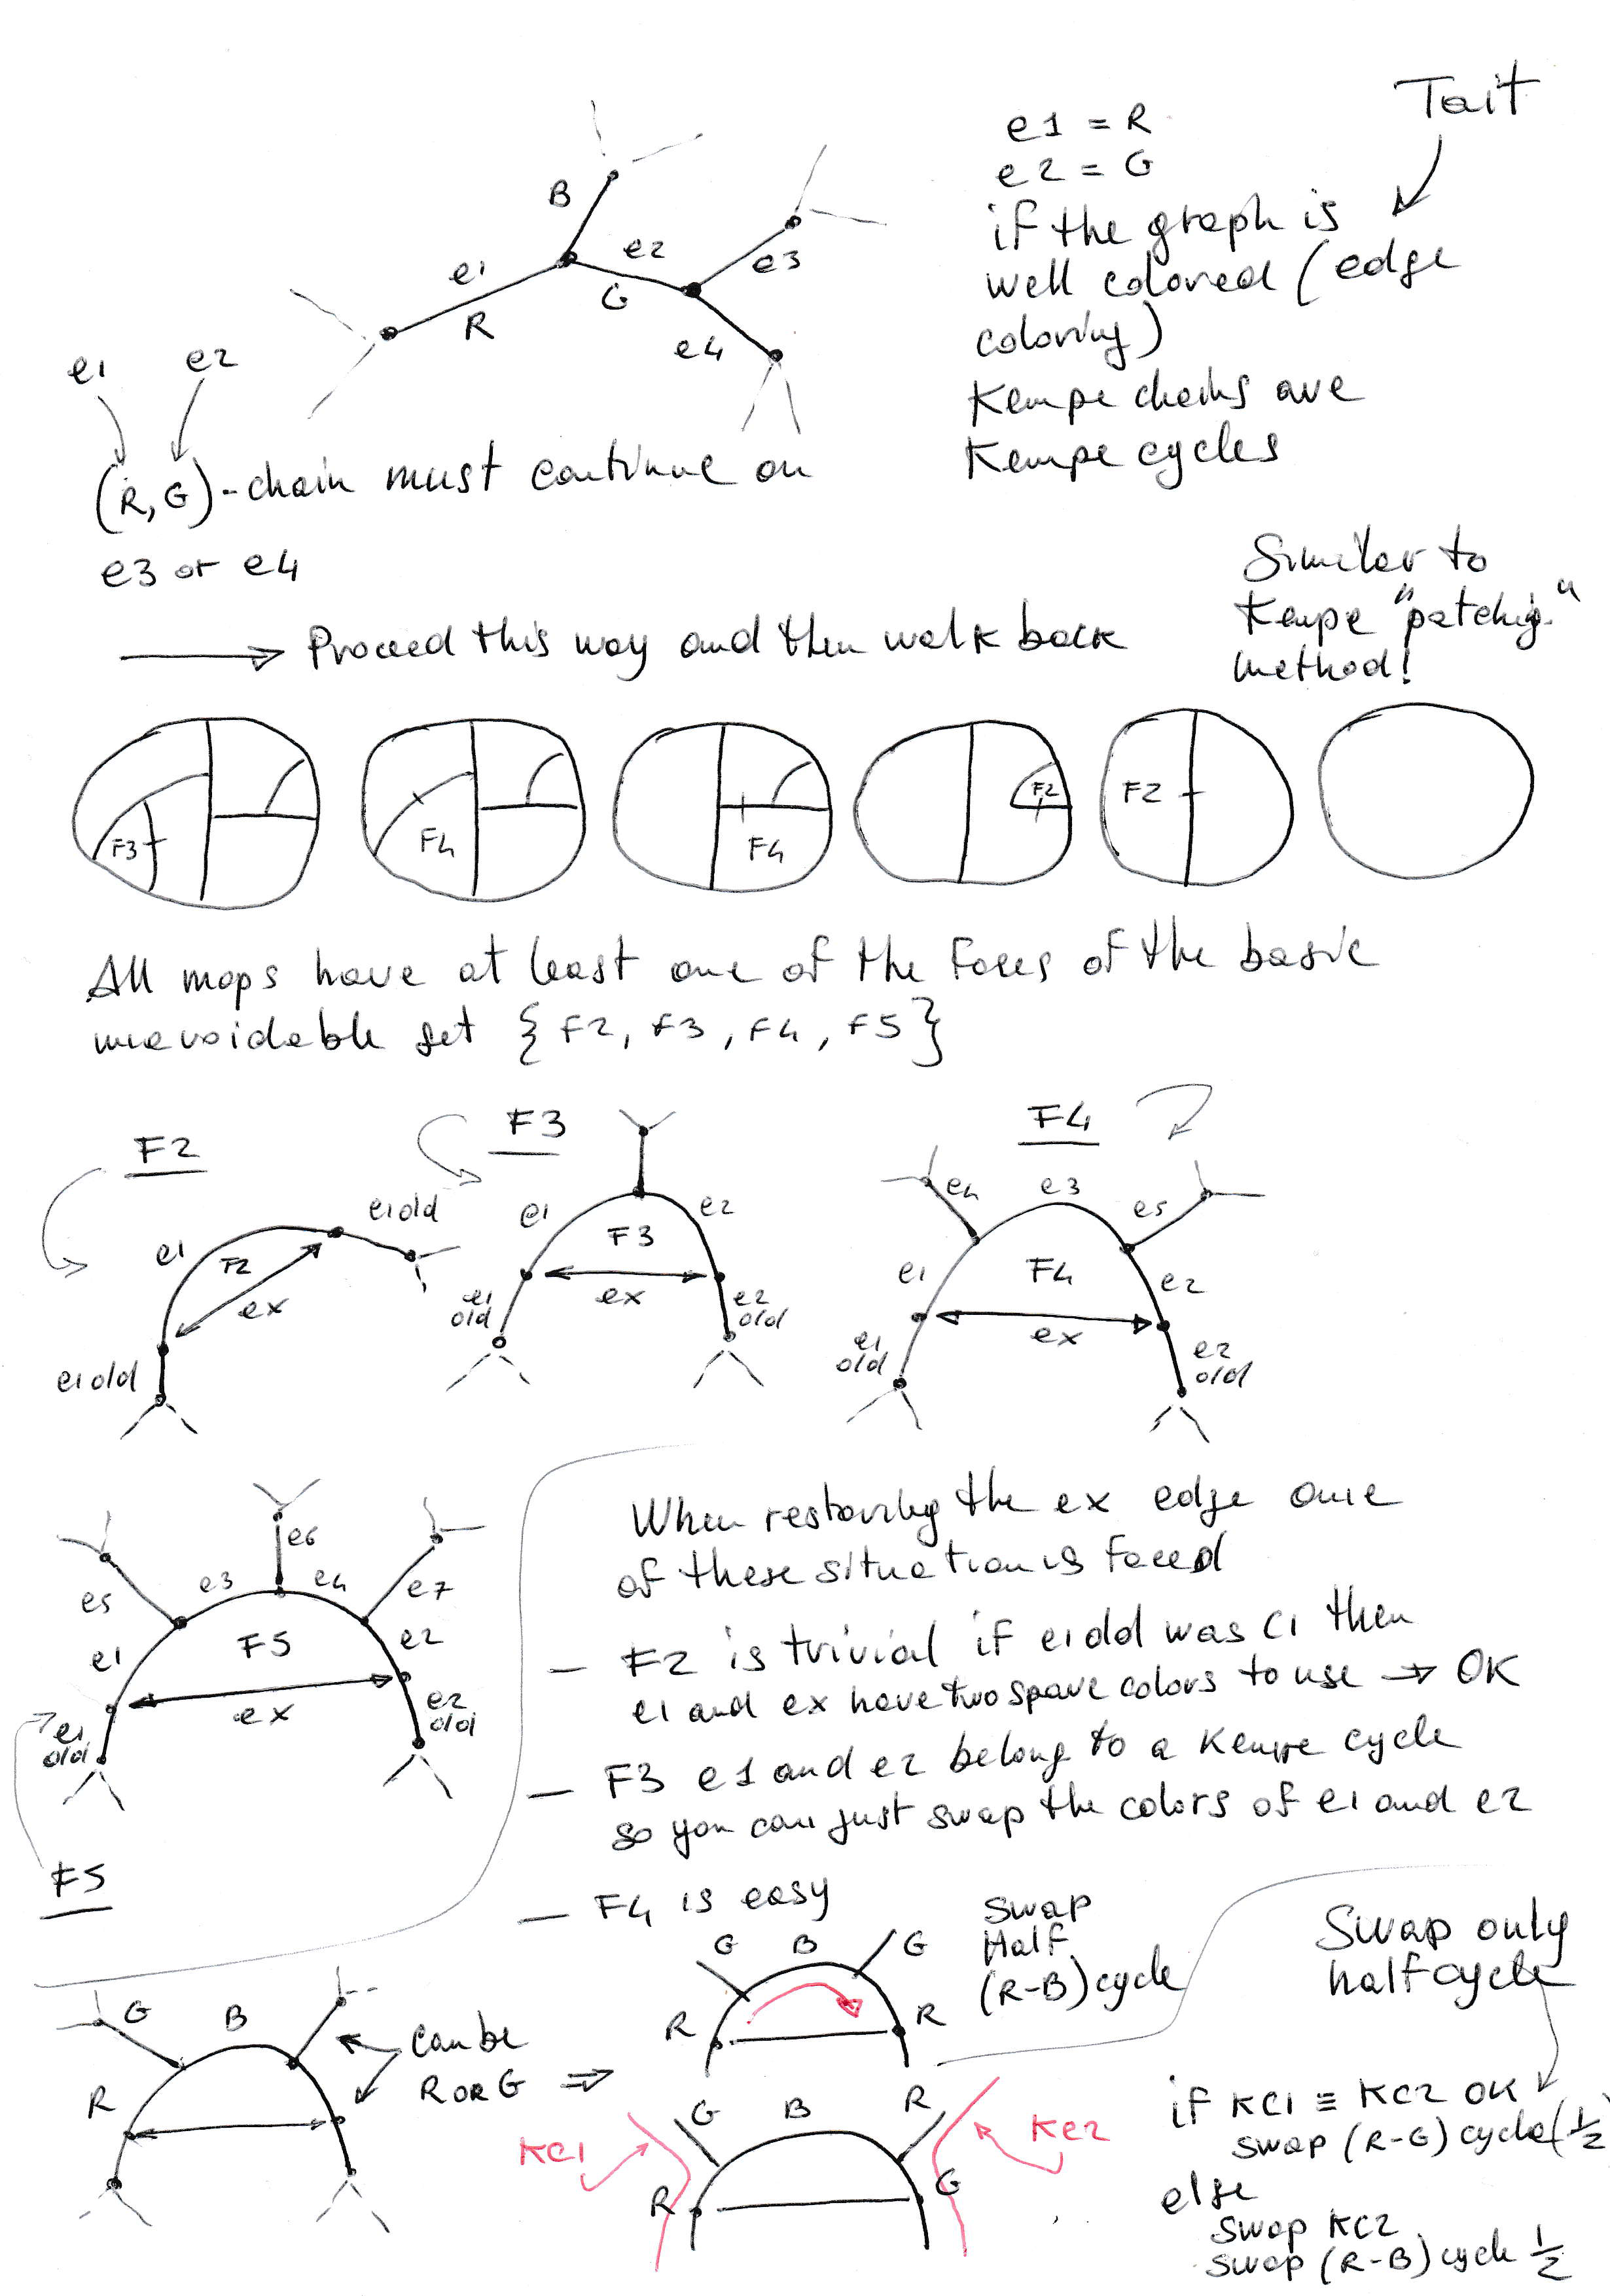 Tait
e1 = R
e2 = G
if the graph is
well colored (edge
coloring)
Kempe chains are
Kempe cycles
B
e1
R
e2
G
e3
e4
e1 e2
(R,G)-chain must continue on
e3 or e4
Similar to
Kempe "patchig"
method!
Proceed this way and then walk back
F3
F4
F4
F2
F2
All maps have at least one of the faces of the basic
unavoidable set {F2, F3, F4, F5}
F2
e1old
e1
F2
ex
e1old
F3
e1
e2
F3
ex
e1
old
e2
old
F4
e4
e3
e5
e1
F4
e2
ex
e1
old
e2
old
e6
e5
e3
e4
e7
e1
F5
e2
ex
e1
old
e2
old
F5
When restoring the ex edge one
of these situation is faced
- F2 is trivial if e1old was C1 then
e1 and ex have two spare colors to use → OK
- F3 e1 and e2 belong to a Kempe cycle
so you can just swap the colors of e1 and e2
- F4 is easy
G B G
R R
Swap
Half
(R-B) cycle
Swap only
half cycle
G B
R
can be
R OR G ⇒
G B R
R G
KC1
KC2
if KC1 ≡ KC2 OK
swap (R-G) cycle (1/2)
else
Swap KC2
swap (R-B) cycle 1/2